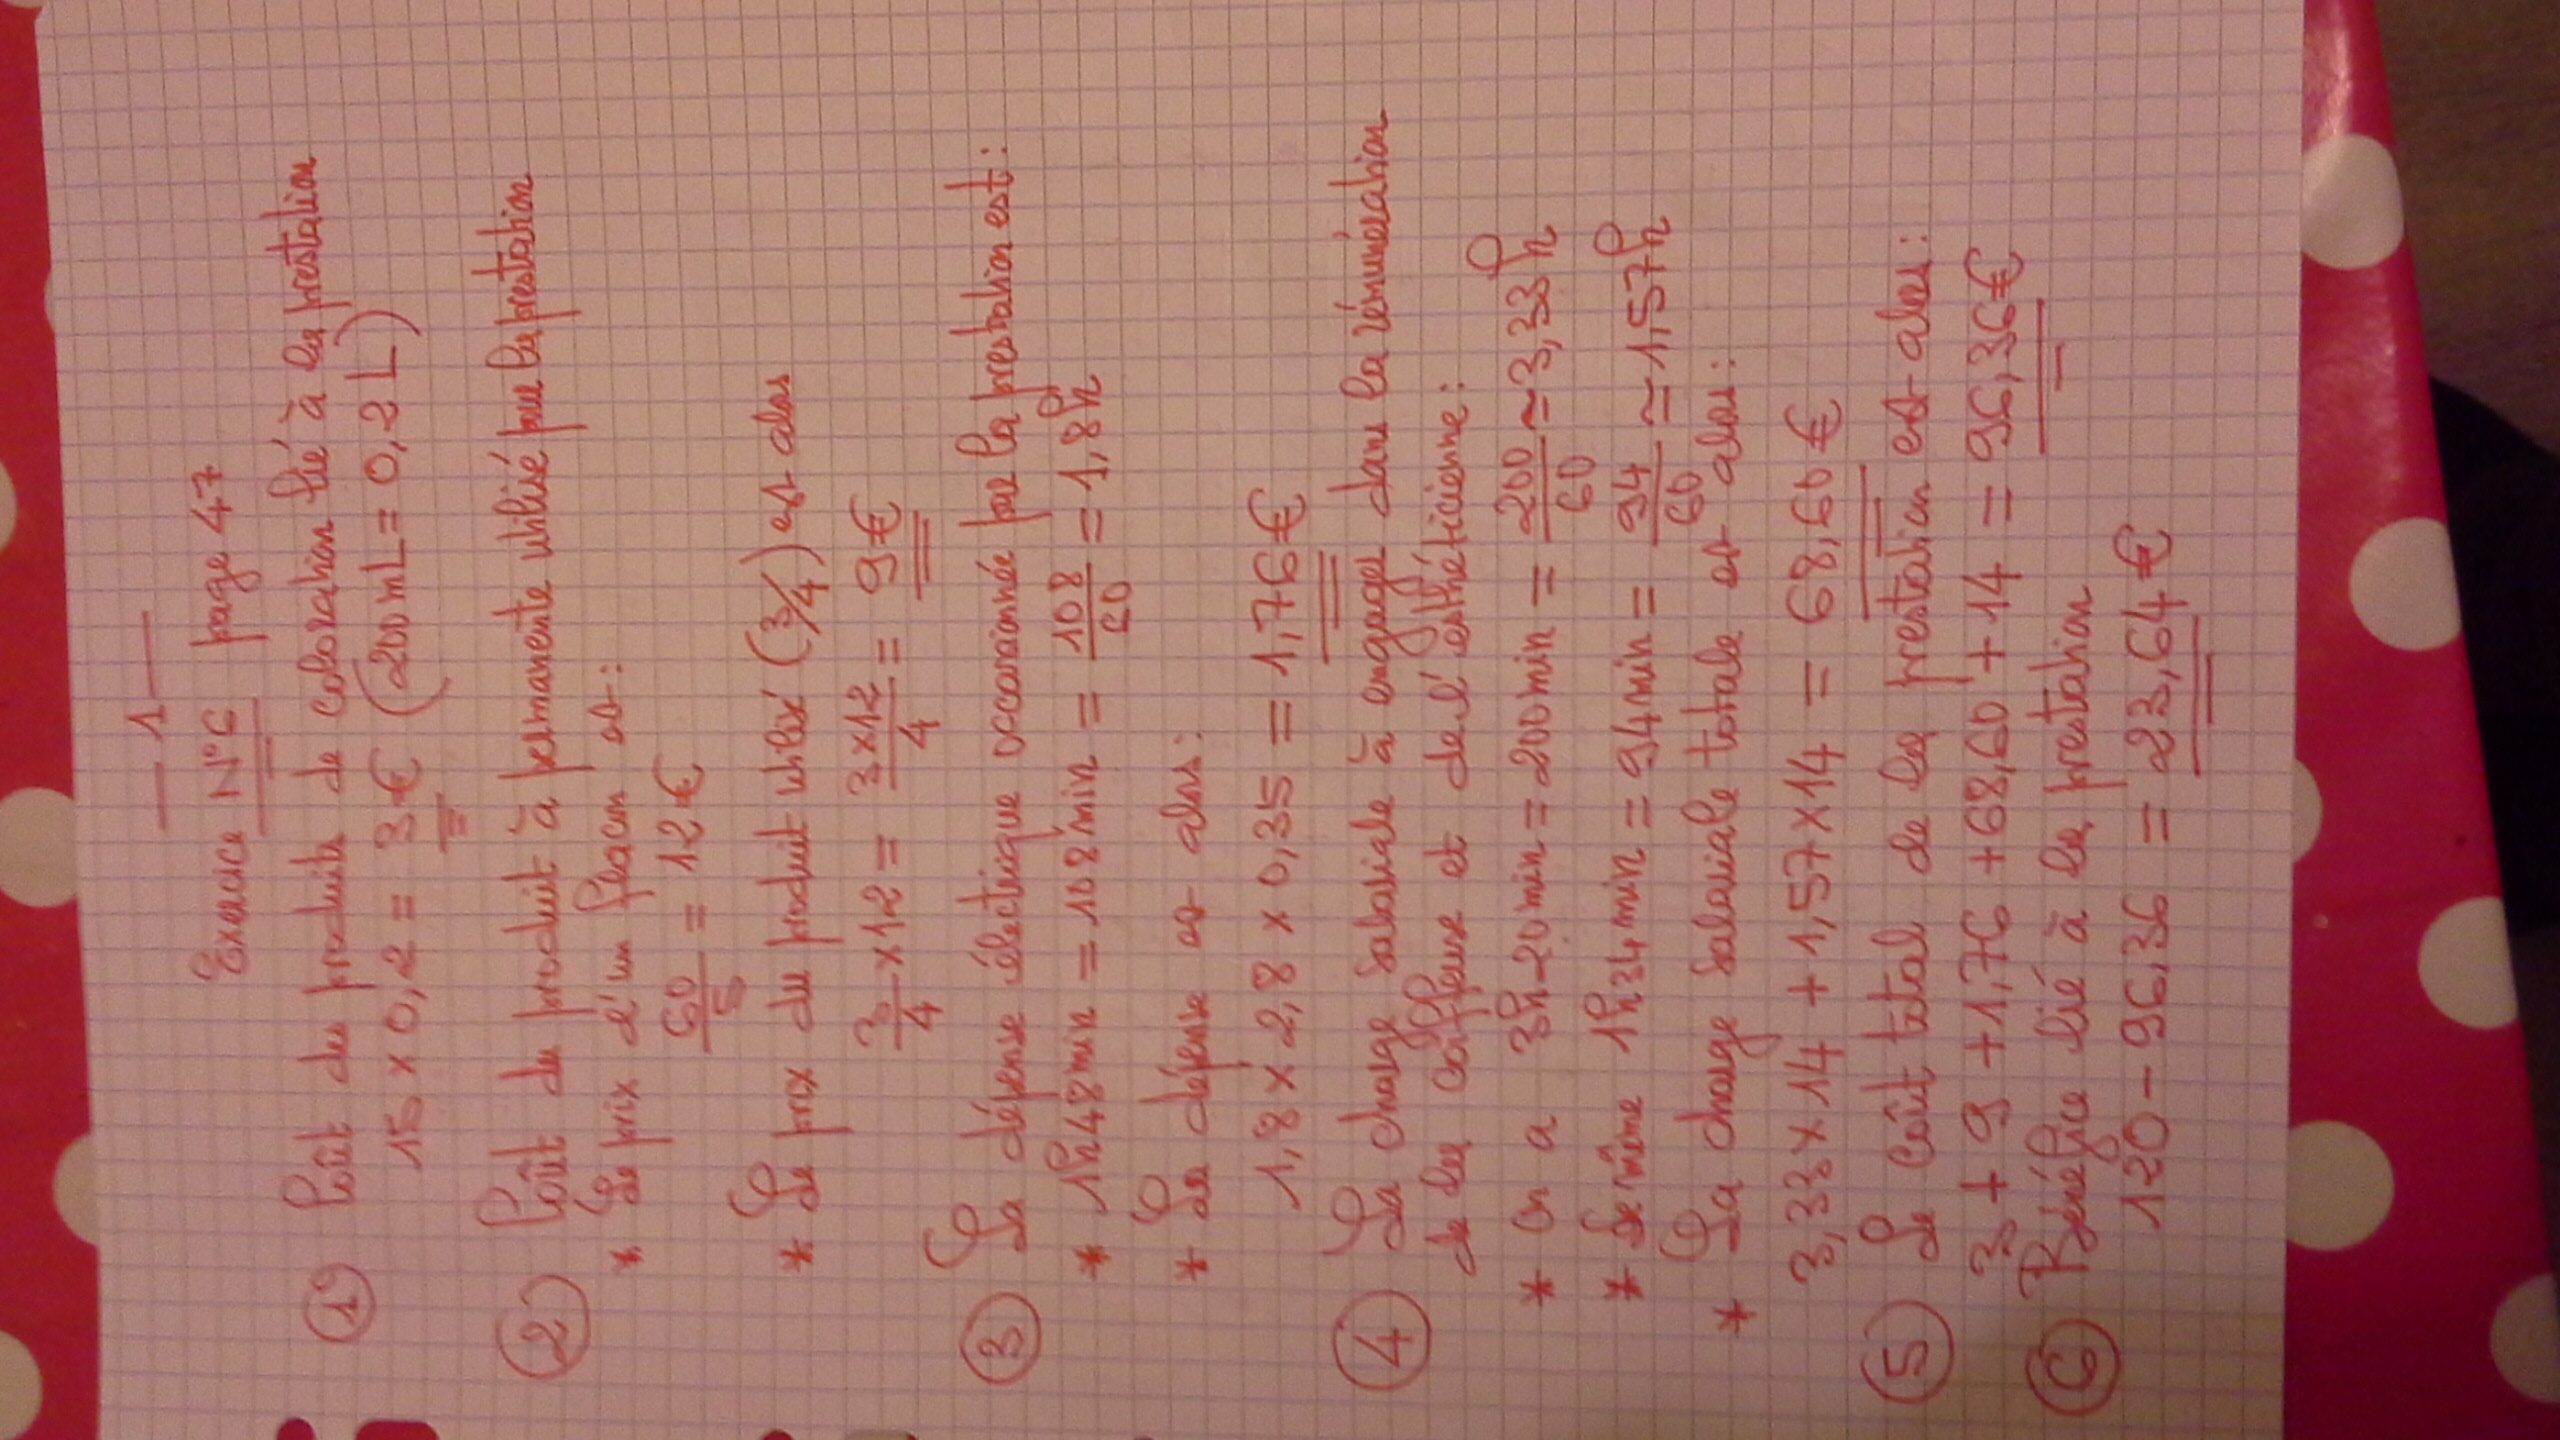 — 1 —
Exercice N°6 page 47
① Coût du produit de coloration lié à la prestation
15 x 0,2 = 3€ (200mL = 0,2L)
② Coût du produit à permanente utilisé par la prestation
* Le prix d'un flacon est :
60/5 = 12€
* Le prix du produit utilisé (3/4) est alors
3/4 x 12 = 3x12/4 = 9€
③ La dépense électrique occasionnée par la prestation est :
* 1h48min = 108min = 108/60 = 1,8h
* La dépense est alors :
1,8 x 2,8 x 0,35 = 1,76€
④ La charge salariale à engager dans la rémunération
de la coiffeuse et de l'esthéticienne :
* on a 3h20min = 200min = 200/60 ≃ 3,33h
* De même 1h34min = 94min = 94/60 ≃ 1,57h
* La charge salariale totale est alors :
3,33x14 + 1,57x14 = 68,60€
⑤ Le coût total de la prestation est alors :
3 + 9 + 1,76 + 68,60 + 14 = 96,36€
⑥ Bénéfice lié à la prestation
120 - 96,36 = 23,64€